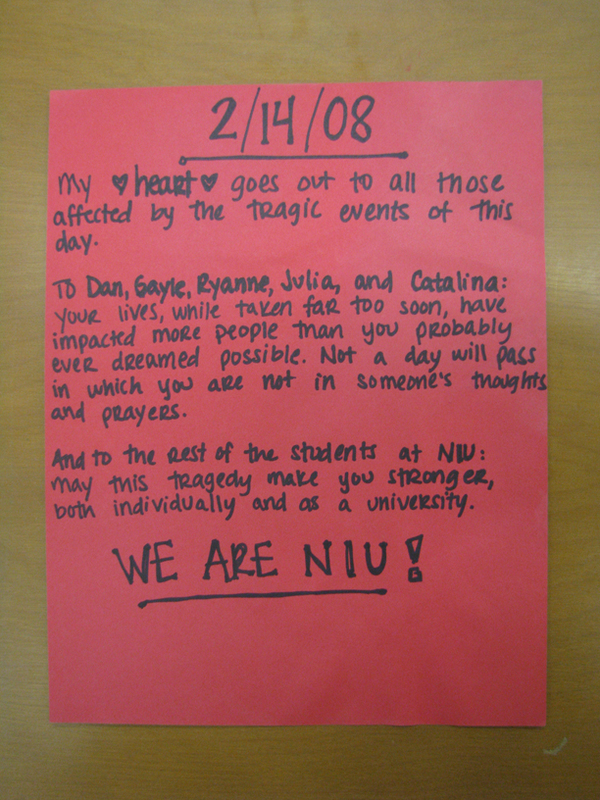 2/14/08
My ♥ heart ♥ goes out to all those
affected by the tragic events of this
day.
To Dan, Gayle, Ryanne, Julia, and Catalina:
your lives, while taken far too soon, have
impacted more people than you probably
ever dreamed possible. Not a day will pass
in which you are not in someone's thoughts
and prayers.
And to the rest of the students at NIU:
may this tragedy make you stronger,
both individually and as a university.
WE ARE NIU!